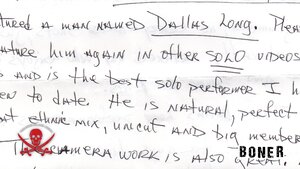 tured a man named Dallas Long. Plea
ature him again in other SOLO videos
s and is the best solo performer I h
en to date. He is natural, perfect
nt ethnic mix, uncut and big member
camera work is also great.
BONER